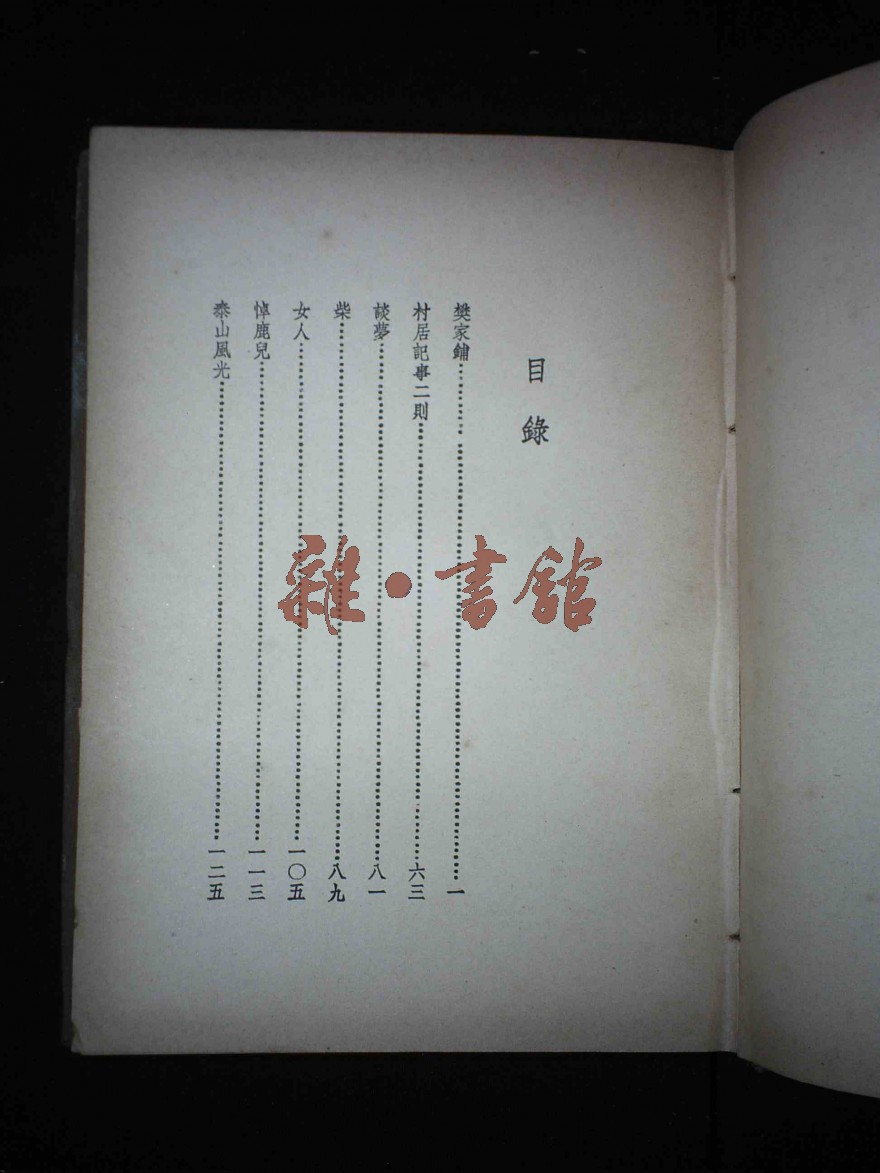 目錄
樊家鋪……一
村居記事二則……六三
談夢……八一
柴……八九
女人……一〇五
悼鹿兒……一一三
泰山風光……一二五
雜·書館